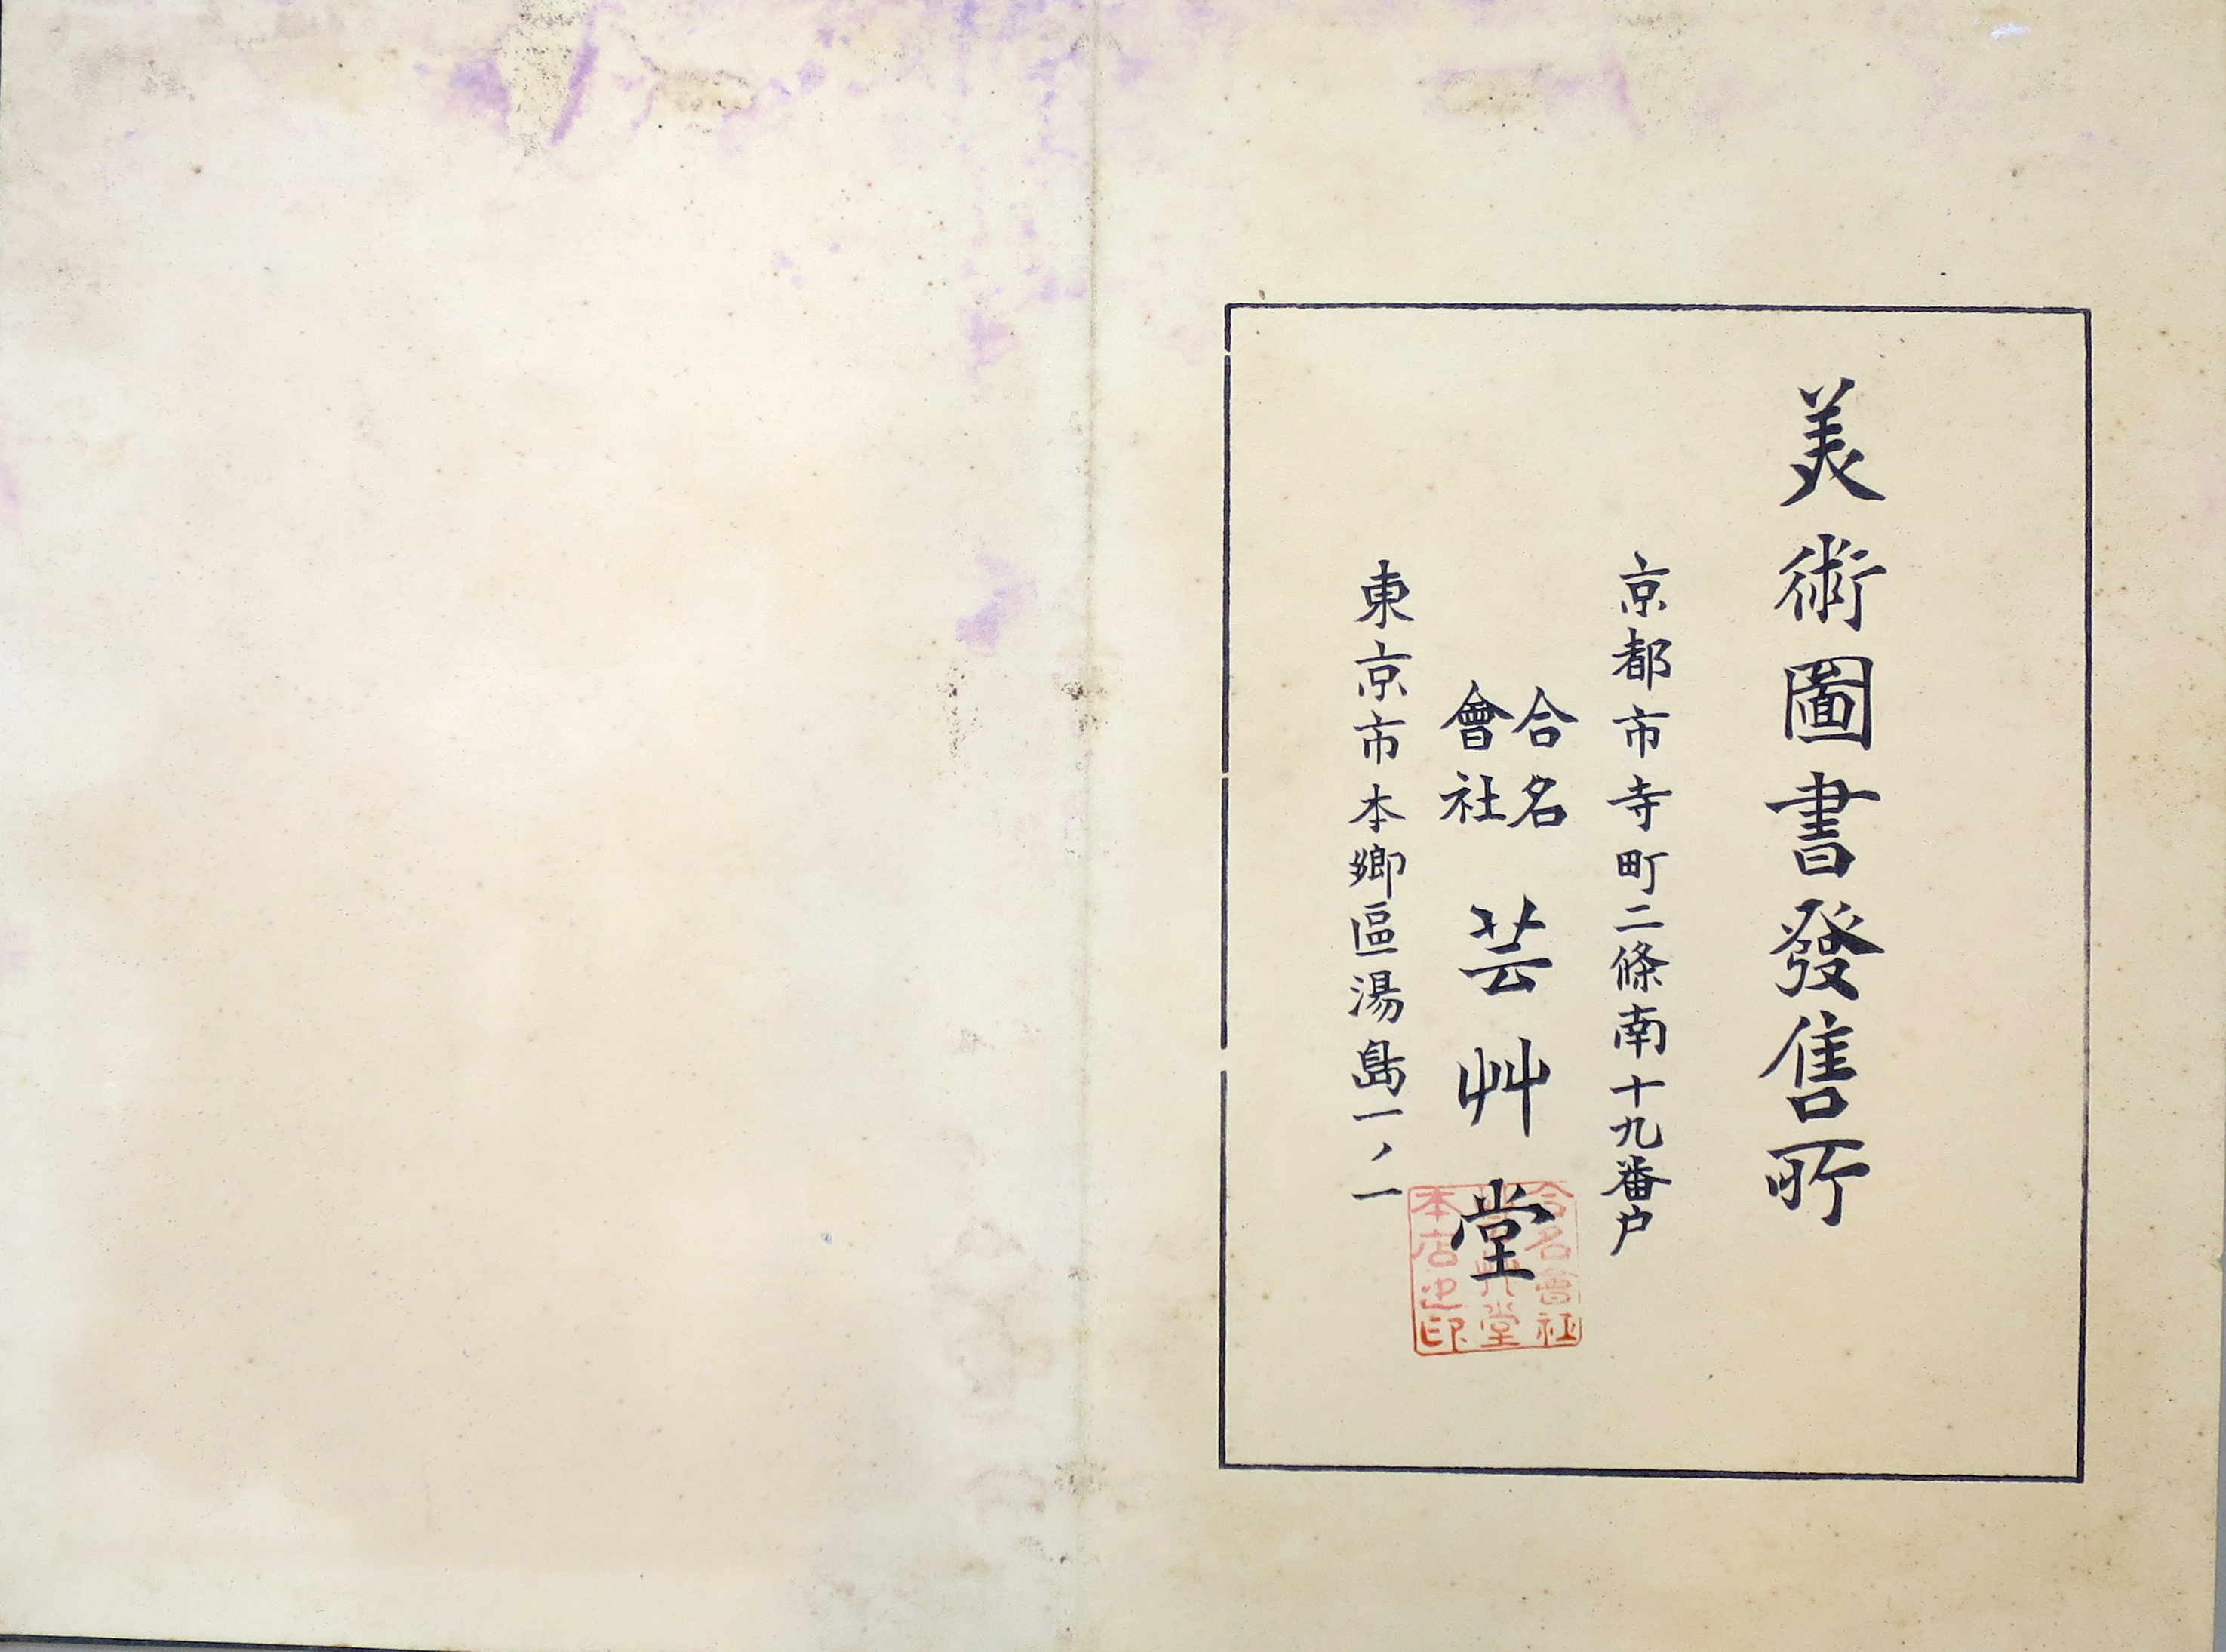 美術圖書發售所
京都市寺町二條南十九番户
合名
會社
芸艸堂
東京市本鄉區湯島一ノ一
合名會社
芸艸堂
本店之印